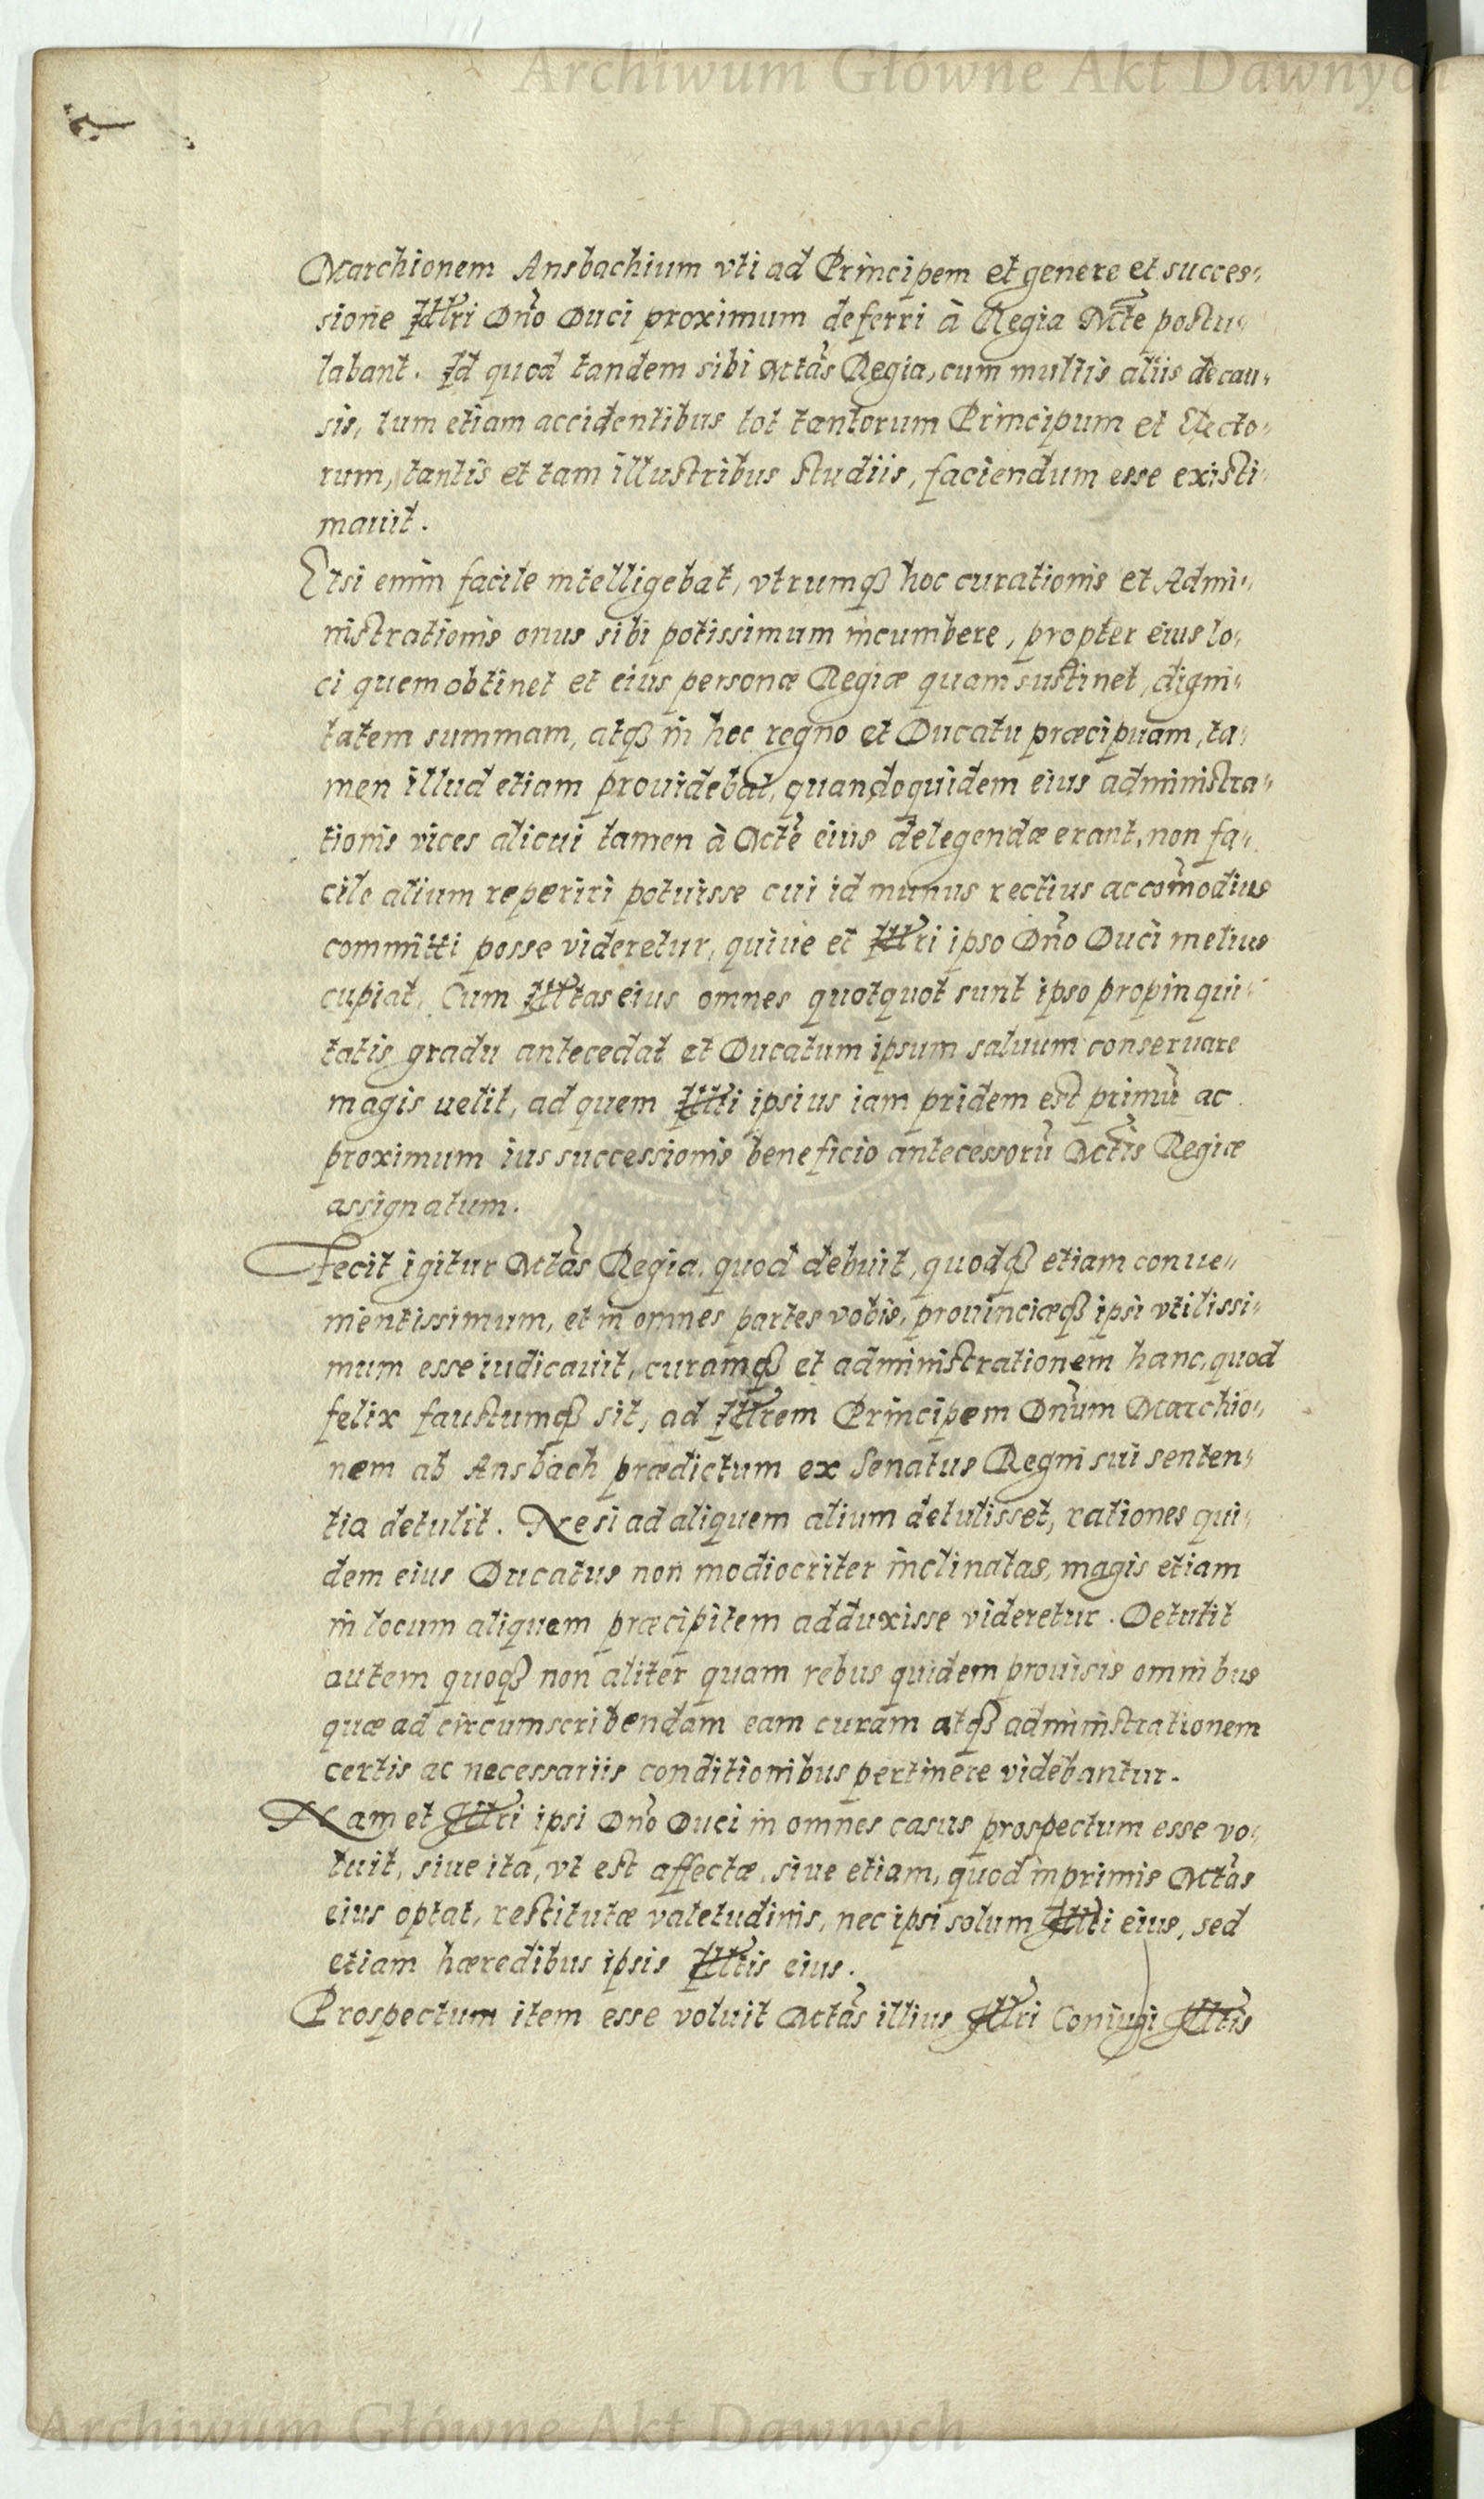 Archiwum Główne Akt Dawnych
Marchionem Ansbachium vti ad Principem et genere et succes„
sione Illri Dño Duci proximum deferri à Regia Mte postu„
labant. Id quod tandem sibi Mtas Regia, cum multis aliis de cau„
sis, tum etiam accidentibus tot tantorum Principum et Electo„
rum, tantis et tam illustribus studiis, faciendum esse existi„
mauit.
Etsi enim facile intelligebat, vtrumqȝ hoc curationis et Admi„
nistrationis onus sibi potissimum incumbere, propter eius lo„
ci quem obtinet et eius personæ Regiæ quam sustinet, digni„
tatem summam, atqȝ in hoc regno et Ducatu præcipuam, ta„
men illud etiam prouidebat, quandoquidem eius administra„
tionis vices alicui tamen à Mte eius delegendæ erant, non fa„
cile alium reperiri potuisse cui id munus rectius accom̃odius
committi posse videretur, quiue et Illri ipso Dño Duci melius
cupiat. Cum Illtas eius omnes quotquot sunt ipso propinqui„
tatis gradu antecedat et Ducatum ipsum saluum conseruare
magis uelit, ad quem Illti ipsius iam pridem est primũ ac
proximum ius successionis beneficio antecessorũ Mtis Regiæ
assignatum.
Fecit igitur Mtas Regia, quod debuit, quodqȝ etiam conue„
nientissimum, et in omnes partes vobis, prouinciæqȝ ipsi vtilissi„
mum esse iudicauit, curamqȝ et administrationem hanc, quod
felix faustumqȝ sit, ad Illrem Principem Dñum Marchio„
nem ab Ansbach prædictum ex Senatus Regni sui senten„
tia detulit. Ne si ad aliquem alium detulisset, rationes qui„
dem eius Ducatus non mediocriter inclinatas, magis etiam
in locum aliquem præcipitem adduxisse videretur. Detulit
autem quoqȝ non aliter quam rebus quidem prouisis omnibus
quæ ad circumscribendam eam curam atqȝ administrationem
certis ac necessariis conditionibus pertinere videbantur.
Nam et Illri ipsi Dño Duci in omnes casus prospectum esse vo„
luit, siue ita, vt est affectæ, siue etiam, quod inprimis Mtas
eius optat, restitutæ valetudinis, nec ipsi solum Illti eius, sed
etiam hæredibus ipsis Illtis eius.
Prospectum item esse voluit Mtas illius Illri Coniugi Illtis
Archiwum Główne Akt Dawnych